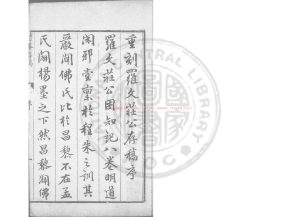 重刻羅文莊公存稿序
羅文莊公困知記八卷明道
闢邪壹稟於程朱之訓其
嚴闢佛氏比於昌黎不在孟
氏闢楊墨之下然昌黎闢佛